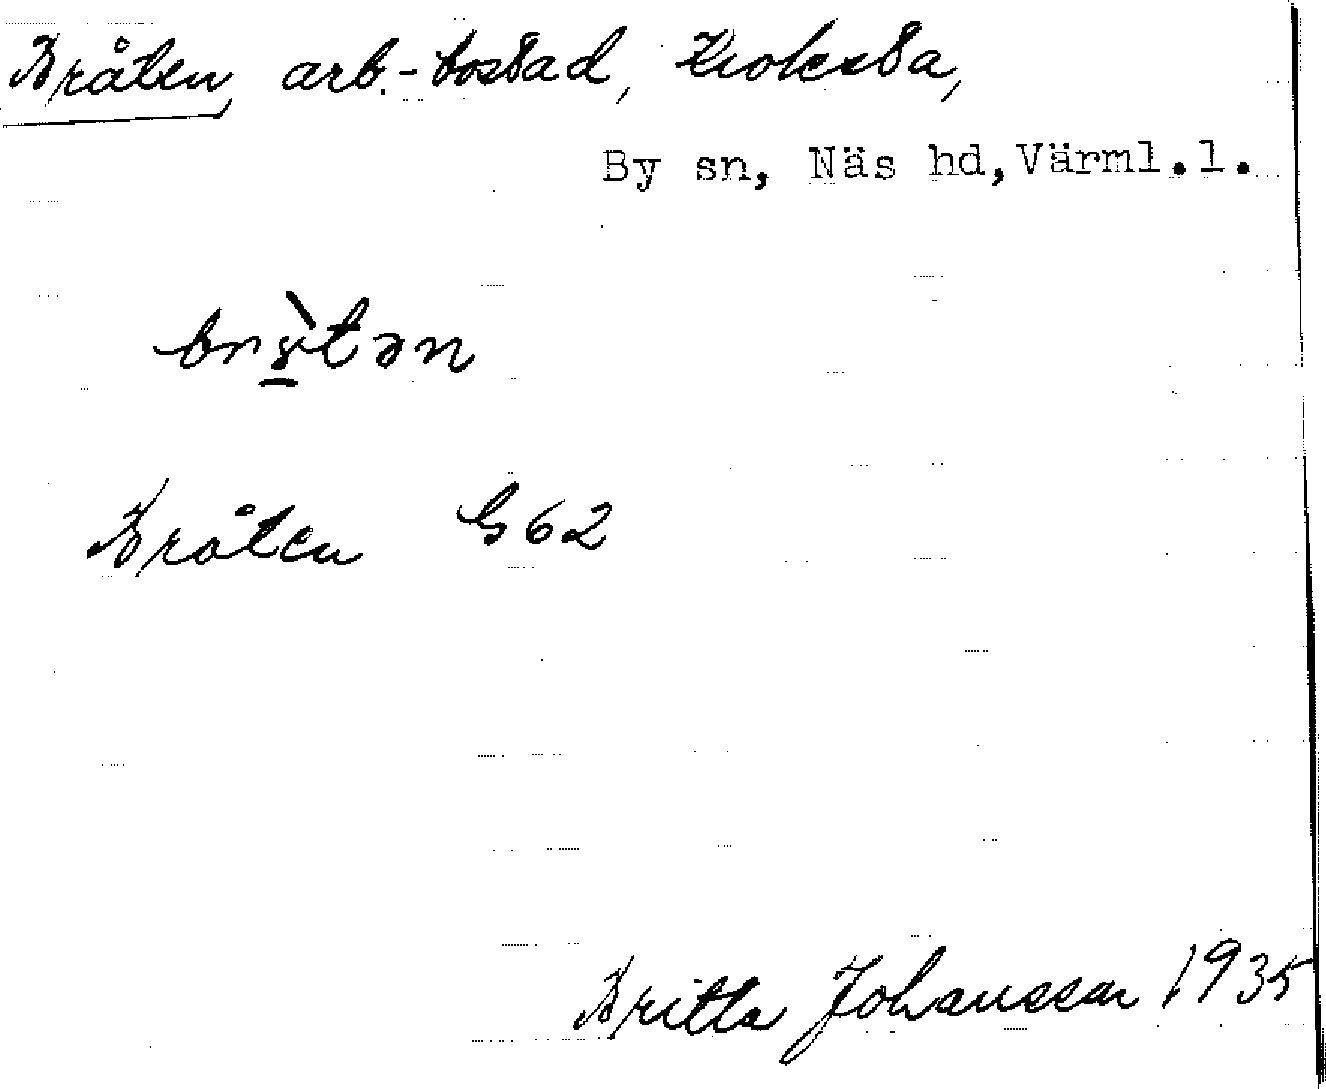 Bråten, arb.-bostad, Krokstad,
By sn, Näs hd, Värml.l.
Bråten G62
Britta Johansson 1935